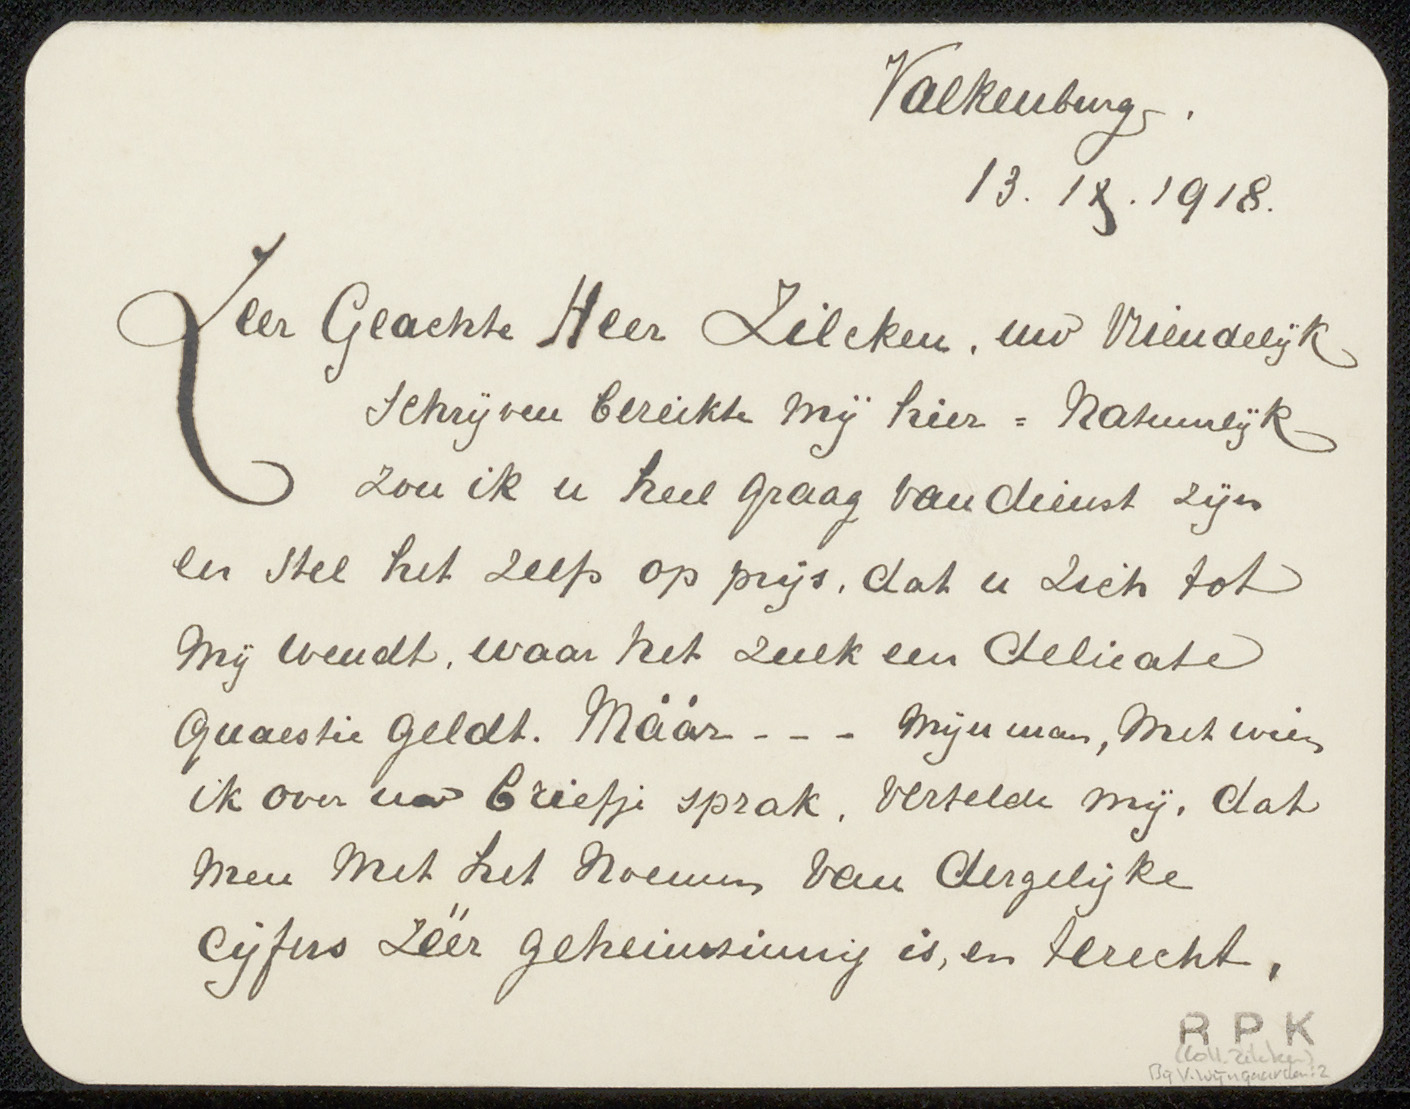 Valkenburg.
13. IX. 1918.
Zeer Geachte Heer Zilcken, uw vriendelijk
schrijven bereikte mij hier = Natuurlijk
zou ik u heel graag van dienst zijn
en stel het zelfs op prijs, dat u zich tot
mij wendt, waar het zulk een delicate
quaestie geldt. Máár - - - mijn man, met wien
ik over uw briefje sprak, vertelde mij, dat
men met het noemen van dergelijke
cijfers zéér geheimzinnig is, en terecht,
R P K
(Coll. Zilcken)